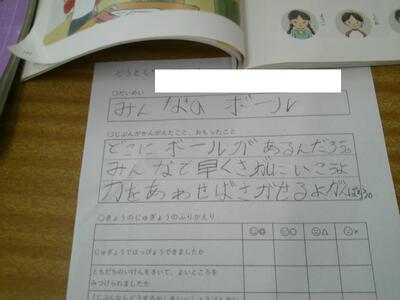 どうとく
○だいめい
みんなの ボール
○じぶんがかんがえたこと、おもったこと
どこに ボールが あるんだろう。
みんなで 早くさがしにいこうよ
力をあわせばさがせるよ がんばろう
○きょうのじゅぎょうのふりかえり
じゅぎょうではっぴょうできましたか
ともだちのいけんをきいて、よいところを
みつけられましたか